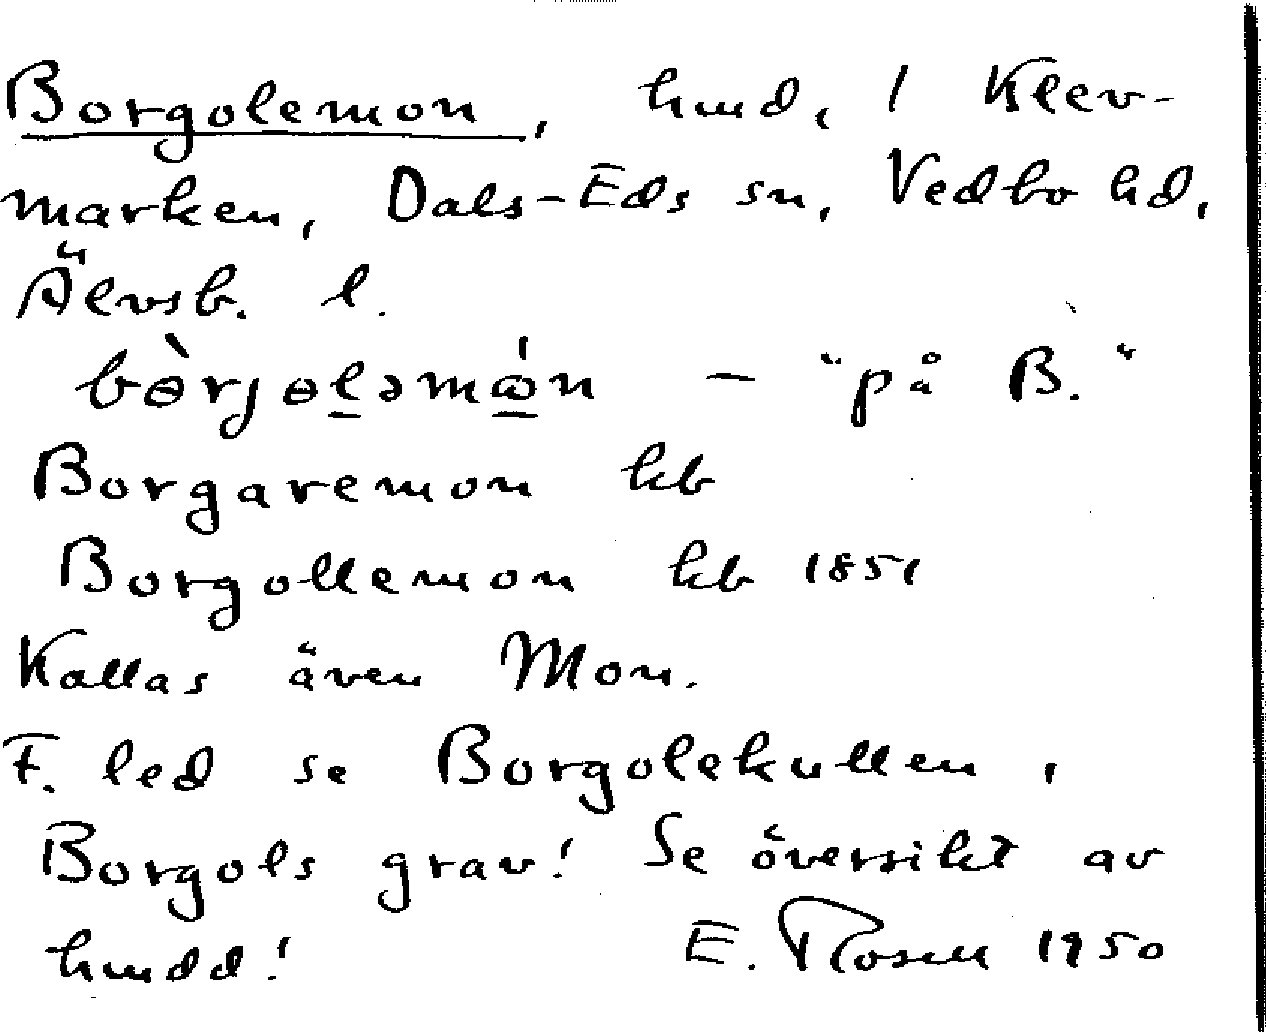 Borgolemon, hmd, 1 Klev-
marken, Dals-Eds sn, Vedbo hd,
Älvsb. l.
bɵ̀rjɵl̲əmώ̲n – "på B."
Borgaremon kb
Borgollemon kb 1851
Kallas även Mon.
F. led se Borgolekullen,
Borgols grav! Se översikt av
hmdd! E. Rosell 1950